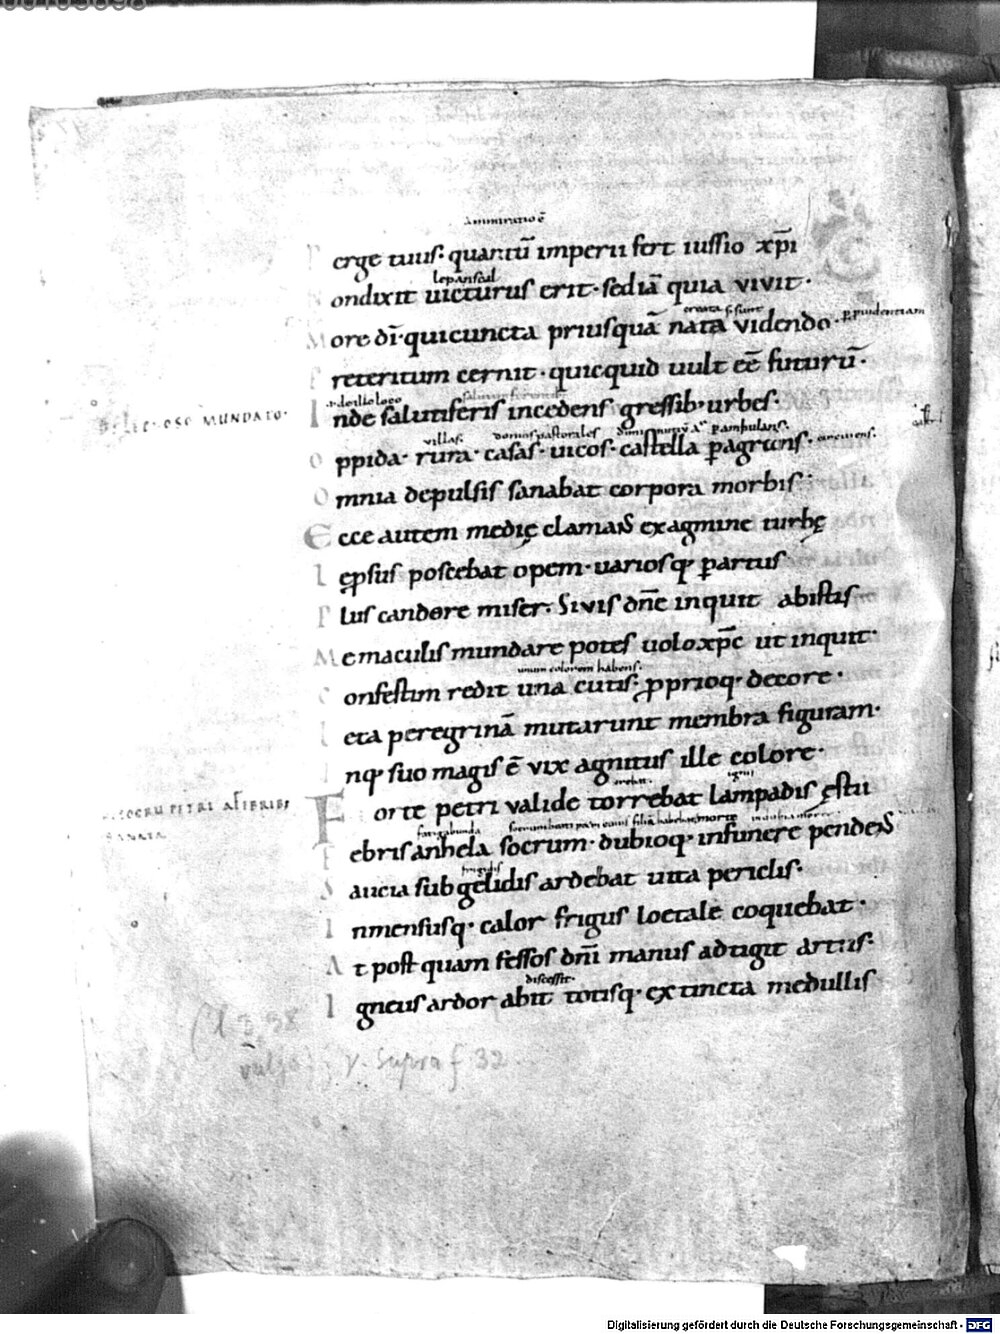 Ammiratio ē
P erge tuus· quantū imperii fert iussio xp̄i
N ondixit uicturus erit· sediā quia vivit·
M ore dī· quicuncta priusquā nata videndo· p prudentiam
P reteritum cernit· quicquid uult eē futurū·
DE LEPROSO MUNDATO·
I nde salutiferis incedens gressib; urbes·
villas· domus pastorales
O ppida· rura· casas· uicos· castella pagrans·
O mnia depulsis sanabat corpora morbis·
E cce autem medię clamans exagmine turbę
L epsus poscebat opem· uariosq; partus
P lus candore miser· Si vis dn̄e inquit abistis
M e maculis mundare potes uolo xp̄c ut inquit·
unum colorem habens·
C onfestim redit una cutis· proprioq· decore·
L eta peregrinā mutarunt membra figuram·
I nq; suo magis ē vix agnitus ille colore·
SOCRU PETRI A FEBRIBUS
SANATA
F orte petri valide torrebat lampadis ęstu
F ebris anhela socrum· dubioq· infunere pendens
S aucia sub gelidis ardebat uita periclis·
I nmensusq· calor frigus loetale coquebat·
A t post quam fessos dn̄i manus adtigit artus·
discessit·
I gneus ardor abiit totisq· extincta medullis
v. supra f 32
Digitalisierung gefördert durch die Deutsche Forschungsgemeinschaft - DFG